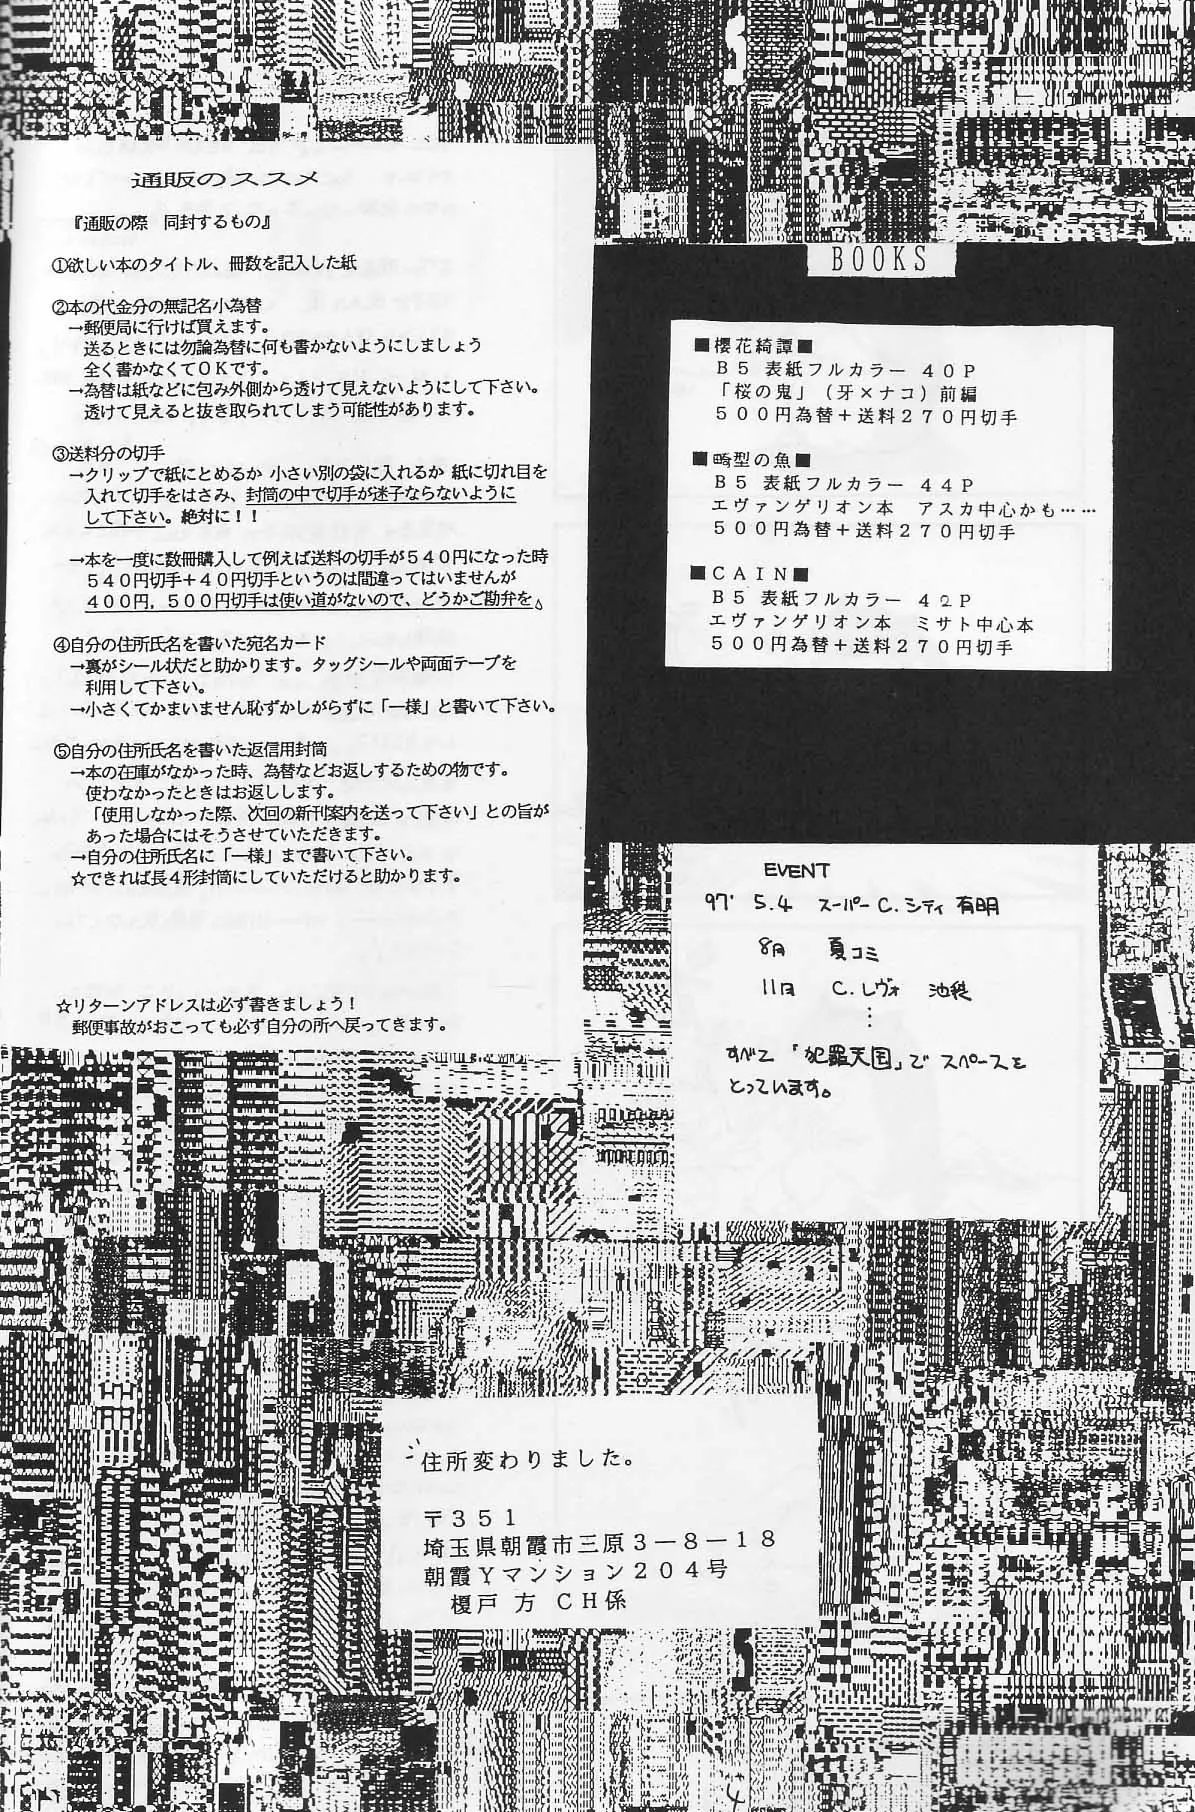 通販のススメ
『通販の際　同封するもの』
①欲しい本のタイトル、冊数を記入した紙
②本の代金分の無記名小為替
→郵便局に行けば買えます。
送るときには勿論為替に何も書かないようにしましょう
全く書かなくてＯＫです。
→為替は紙などに包み外側から透けて見えないようにして下さい。
透けて見えると抜き取られてしまう可能性があります。
③送料分の切手
→クリップで紙にとめるか 小さい別の袋に入れるか 紙に切れ目を
入れて切手をはさみ、封筒の中で切手が迷子ならないように
して下さい。絶対に！！
→本を一度に数冊購入して例えば送料の切手が５４０円になった時
５４０円切手＋４０円切手というのは間違ってはいませんが
４００円，５００円切手は使い道がないので、どうかご勘弁を。
④自分の住所氏名を書いた宛名カード
→裏がシール状だと助かります。タッグシールや両面テープを
利用して下さい。
→小さくてかまいません恥ずかしがらずに「一様」と書いて下さい。
⑤自分の住所氏名を書いた返信用封筒
→本の在庫がなかった時、為替などお返しするための物です。
使わなかったときはお返しします。
「使用しなかった際、次回の新刊案内を送って下さい」との旨が
あった場合にはそうさせていただきます。
→自分の住所氏名に「一様」まで書いて下さい。
☆できれば長４形封筒にしていただけると助かります。
☆リターンアドレスは必ず書きましょう！
郵便事故がおこっても必ず自分の所へ戻ってきます。
BOOKS
■櫻花綺譚■
Ｂ５ 表紙フルカラー ４０Ｐ
「桜の鬼」（牙×ナコ）前編
５００円為替＋送料２７０円切手
■畸型の魚■
Ｂ５ 表紙フルカラー ４４Ｐ
エヴァンゲリオン本　アスカ中心かも……
５００円為替＋送料２７０円切手
■ＣＡＩＮ■
Ｂ５ 表紙フルカラー ４２Ｐ
エヴァンゲリオン本　ミサト中心本
５００円為替＋送料２７０円切手
EVENT
97' 5.4 スーパーC.シティ 有明
8月 夏コミ
11月 C.レヴォ 池袋
⋮
すべて「犯罪天国」で スペースを
とっています。
住所変わりました。
〒３５１
埼玉県朝霞市三原３－８－１８
朝霞Ｙマンション２０４号
榎戸 方 ＣＨ係